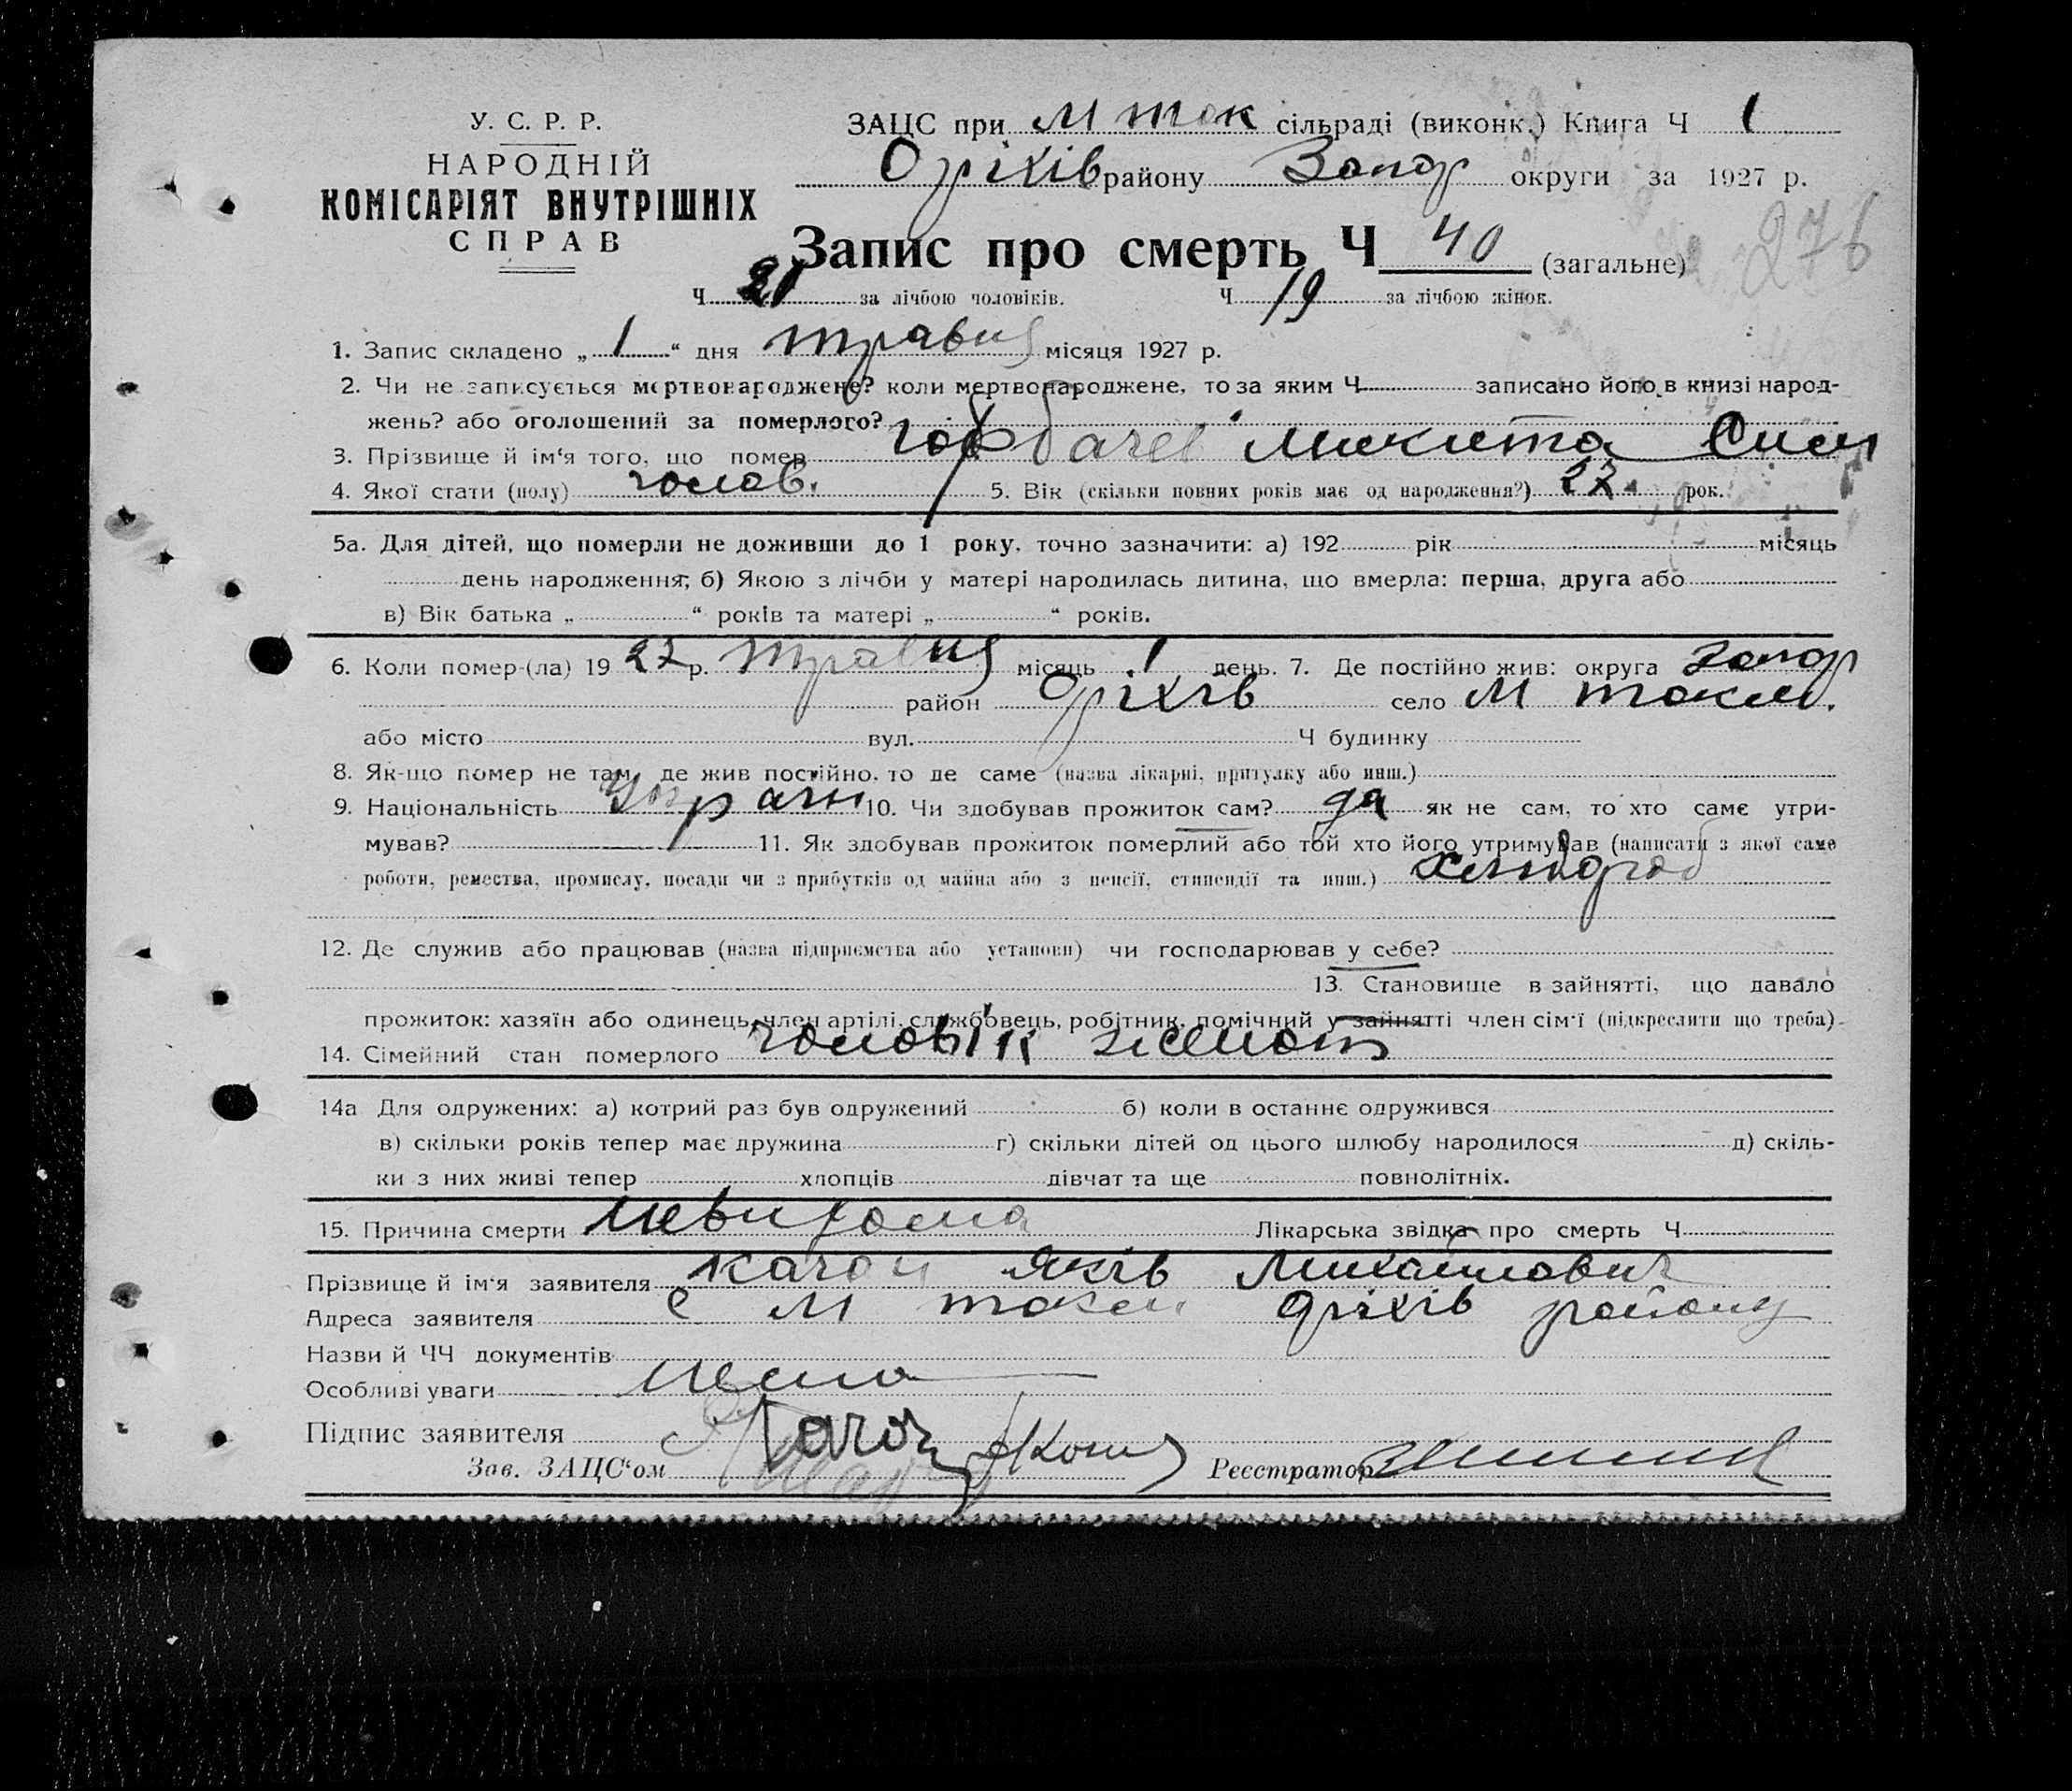 У. С. Р. Р.
НАРОДНІЙ
КОМІСАРІЯТ ВНУТРІШНІХ
СПРАВ
ЗАЦС при М ток сільраді (виконк.) Книга Ч 1
Оріхів району Запор округи за 1927 р.
Запис про смерть Ч 40 (загальне)
276
Ч 21 за лічбою чоловіків. Ч 19 за лічбою жінок.
1. Запис складено „ 1 “ дня травня місяця 1927 р.
2. Чи не записується мертвонароджене? коли мертвонароджене, то за яким Ч записано його в книзі народ-
жень? або оголошений за померлого?
3. Прізвище й ім‘я того, що помер Горбачев Микита
4. Якої стати (полу) чолов. 5. Вік (скільки повних років має од народження?) 27 рок.
5а. Для дітей, що померли не доживши до 1 року, точно зазначити: а) 192 рік місяць
день народження; б) Якою з лічби у матері народилась дитина, що вмерла: перша, друга або
в) Вік батька „ “ років та матері „ “ років.
6. Коли помер-(ла) 19 27 р. травня місяць 1 день. 7. Де постійно жив: округа Запор
район Оріхів село М токм.
або місто вул. Ч будинку
8. Як-що помер не там, де жив постійно, то де саме (назва лікарні, притулку або инш.)
9. Національність 10. Чи здобував прожиток сам? да як не сам, то хто саме утри-
мував? 11. Як здобував прожиток померлий або той хто його утримував (написати з якої саме
роботи, ремества, промислу, посади чи з прибутків од майна або з пенсії, стипендії та инш.)
12. Де служив або працював (назва підприємства або установи) чи господарював у себе?
13. Становище в зайнятті, що давало
прожиток: хазяїн або одинець, член артілі, службовець, робітник, помічний у зайнятті член сім‘ї (підкреслити що треба)
14. Сімейний стан померлого чоловік
14а Для одружених: а) котрий раз був одружений б) коли в останнє одружився
в) скільки років тепер має дружина г) скільки дітей од цього шлюбу народилося д) скіль-
ки з них живі тепер хлопців дівчат та ще повнолітніх.
15. Причина смерти Невидома Лікарська звідка про смерть Ч
Прізвище й ім‘я заявителя Качан Яків Михайлович
Адреса заявителя с М токм Оріхів району
Назви й ЧЧ документів
Особливі уваги нема
Підпис заявителя
Зав. ЗАЦС‘ом Реєстратор